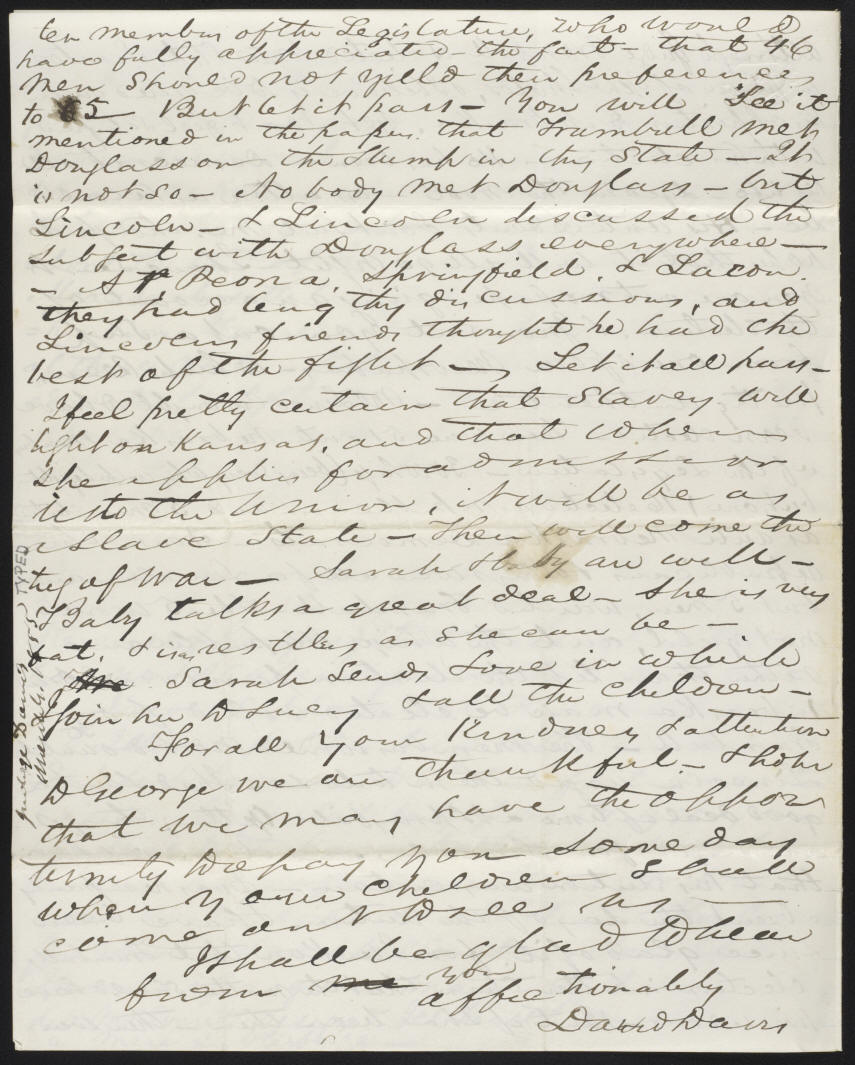 ten members of the Legislature, who would
have fully appreciated the fact - that 46
men should not yield their preferences
to 5 - But let it pass - You will see it
mentioned in the papers that Trumbull met
Douglass on the Stump in this State - It
is not so - No body met Douglass - but
Lincoln - & Lincoln discussed the
subject with Douglass everywhere -
- At Peoria, Springfield, & Lacon.
they had lengthy discussions, and
Lincolns friends thought he had the
best of the fight - Let it all pass -
I feel pretty certain that Slavery will
light on Kansas, and that when
she applies for admission
into the Union, it will be as
a Slave State - Then will come the
tug of war - Sarah & baby are well -
& Baby talks a great deal - She is very
fat, & is as restless as she can be -
Sarah sends Love in which
I join her to Lucy & all the children -
For all your Kindness & attention
to George we are thankful - I hope
that we may have the oppor
tunity to repay you some day
when your children shall
come out to see us -
I shall be glad to hear
from me you
affectionately
David Davis
Judge Davis
1855 TYPED